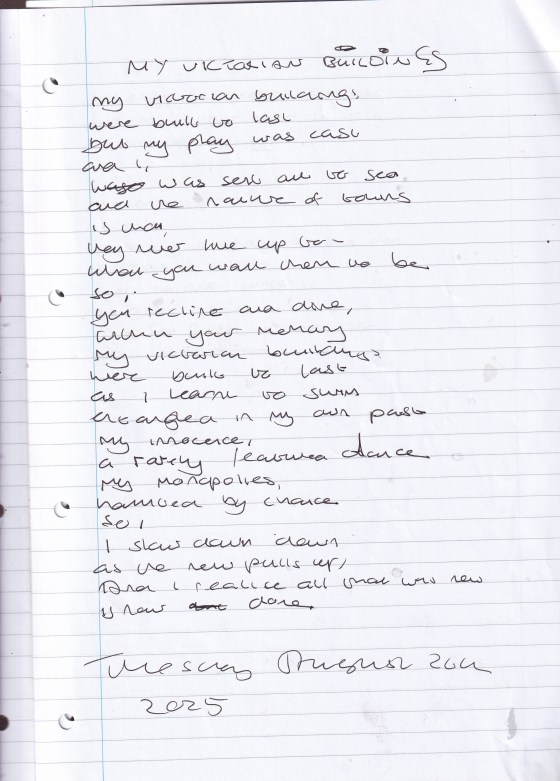 MY VICTORIAN BUILDINGS
my victorian buildings,
were built to last
but my play was cast
and I,
was sent out to sea
and the nature of towns
is that,
they never live up to -
what you want them to be
so,
you recline and dine,
within your memory
my victorian buildings
were built to last
as I learnt to swim
entangled in my own past
my innocence,
a rarely featured dance
my monopolies,
handed by chance
so,
I slow down down
as the new pulls up,
And I realise all that was new
is now done.
Tuesday August 2025